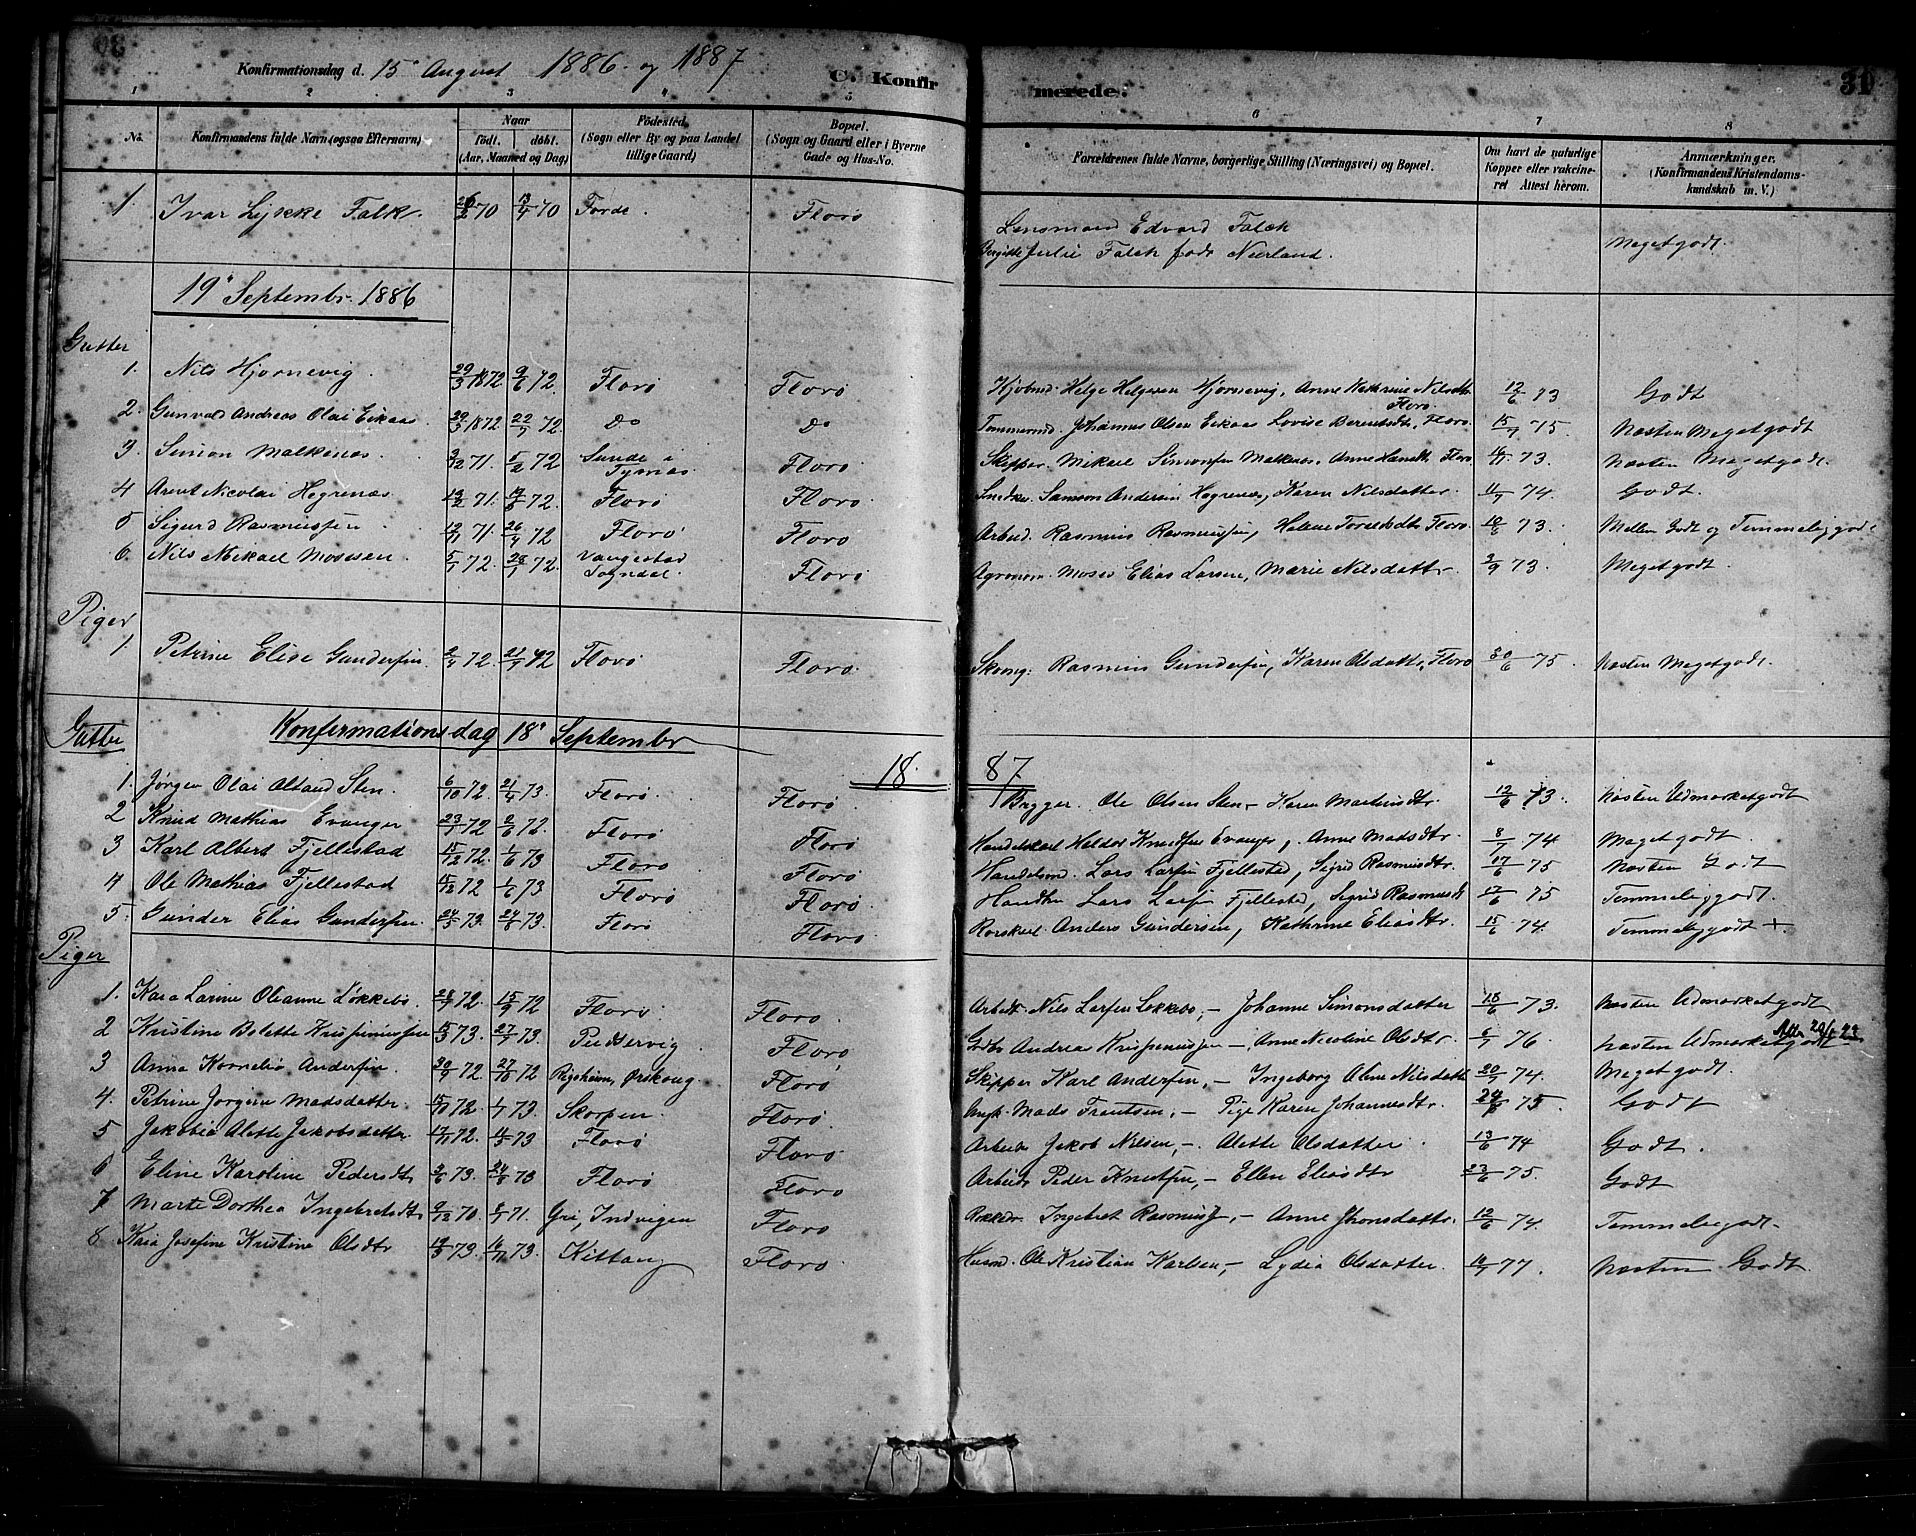 Konfirmationsdag d. 15de August 1886. og 1887
C. Konfirmerede.
31
1 2 3 4 5 6 7 8
No. | Konfirmandens fulde Navn (ogsaa Efternavn) | Naar født. døbt. (Aar, Maaned og Dag) | Fødested. (Sogn eller By og paa Landet tillige Gaard) | Bopæl. (Sogn og Gaard eller i Byerne Gade og Hus-No. | Forældrenes fulde Navne, borgerlige Stilling (Næringsvei) og Bopæl. | Om havt de naturlige Kopper eller vakcineret Attest herom. | Anmærkninger. (Konfirmandens Kristendomskundskab m. V.)
1 Ivar Lykke Falk. 26/2 70 13/4 70 Førde. Florø Lensmand Edvard Falck
Birgitte Julie Falck født Nierland. Meget godt.
19de Septembr. 1886
Gutter
1. Nils Hjornevig. 29/3 1872 9/6 72 Florø Florø Kjøbmd. Helge Helgesen Hjørnevig, Anne Kathrine Nilsdtr. Florø. 12/6 73 Godt
2. Gunvald Andreas Olai Eikaas. 29/3 1872 22/7 72. Do Do Tømmermd. Johannes Olsen Eikaas Lovise Berentsdtr. Florø. 15/7 75 Næsten Meget godt
3. Simon Malkenæs. 3/12 71. 5/2 72 Sunde i Tysnæs Florø Skipper. Mikael Simonsen Malknæs. Anne Hansdtr Florø 73. Næsten Meget godt.
4 Arent Nicolai Hegrenæs 71. 72. Florø Florø Snedker. Samson Andersen Hegrenæs, Karen Nilsdatter. 11/7 74. Godt.
5 Sigurd Rasmussen 12/11 71. 26/4 72 Florø Florø Arbeid. Rasmus Rasmussen, Helene Florø 73. Mellem Godt og Temmelig godt
6. Nils Mikael Mosesen 5/1 72. 72. Vangestad Sogndal. Florø Agronom. Moses Elias Larsen, Marie Nilsdatter. 2/9 73. Meget godt.
Piger
1. Petrine Elise Gundersen. 72. 21/7 72 Florø Florø Rasmus Gundersen, Karen Olsdatter, Florø 30/6 75. Næsten Meget godt.
Gutter
Konfirmationsdag 18de September
1887
1. Jørgen Olai Altand Sten. 6/10 72. 21/4 73. Florø. Florø Brygger. Ole Olsen Sten - Karen Martinsdtr. 12/6 73. Næsten Udmærket godt
2 Knud Mathias Evanger 23/1 72 2/6 72. Florø Florø Handelskarl Heldor Knudsen Evanger, Anne Madsdtr. 8/7 74 Meget godt
3 Karl Albert Fjellestad 15/12 72. 1/6 73 Florø Florø Handelsmd. Lars Larsen Fjellestad, Sigrid Rasmusdtr. 17/6 75 Næsten Godt
4 Ole Mathias Fjellestad 15/12 72 1/6 73 Florø Florø Lars Larsen Fjellestad, Sigrid Rasmusdt 17/6 75 Temmelig godt.
5. Gunder Elias Gundersen. 24/5 73. 24/6 73. Florø Florø Rorskarl. Anders Gundersen, Kathrine Eliasdtr. 15/6 74. Temmelig godt +.
Piger
1. Kaia Larine Oleanne Løkkebø. 28/7 72. 15/9 72 Florø. Florø. Arbeidr. Nils Larsen Løkkebø, - Johanne Simonsdatter 15/6 73. Næsten Udmærket godt
2 Kristine Bolette Krispinussen 15/3 73. 27/7 73. Puddervig. Florø Gdbr. Andreas Krispinussen -, Anne Nicoline Olsdtr. 6/7 76. Næsten Udmærket godt
3 Anna Kornelia Andersen. 30/9 72. 27/10 72 Rigsheim, Ørskoug Florø Skipper Karl Andersen, - Ingeborg Oline Nilsdatter 20/7 74. Meget godt.
4. Petrine Jørgine Madsdatter. 15/10 72. 1/1 73. Skorpen. Florø. Mads Frantsen, - Pige Karen Johannesdtr. 75. Godt
5 Jakobia Alette Jakobsdatter 17/11 72. 73 Florø Florø. Arbeidr Jakob Nilsen, -. Alette Olsdatter. 13/6 74 Godt.
6 Eline Karoline Pedersdtr 3/6 73. 24/6 73 Florø Florø Arbeidr Peder Knudsen, - Ellen Eliasdtr 23/6 75. Godt
7 Marte Dorthea Ingebretsdtr 9/12 70. 8/1 71. Gri, Indvigen Florø Ingebret Rasmuss, - Anne Jhonsdatter. 12/6 74. Temmelig godt.
8 Kaia Josefine Kristine Olsdtr 73. 73. Kittang Florø. Husmd. Ole Kristian Karlsen, - Lydia Olsdatter. 77. Næsten Godt.